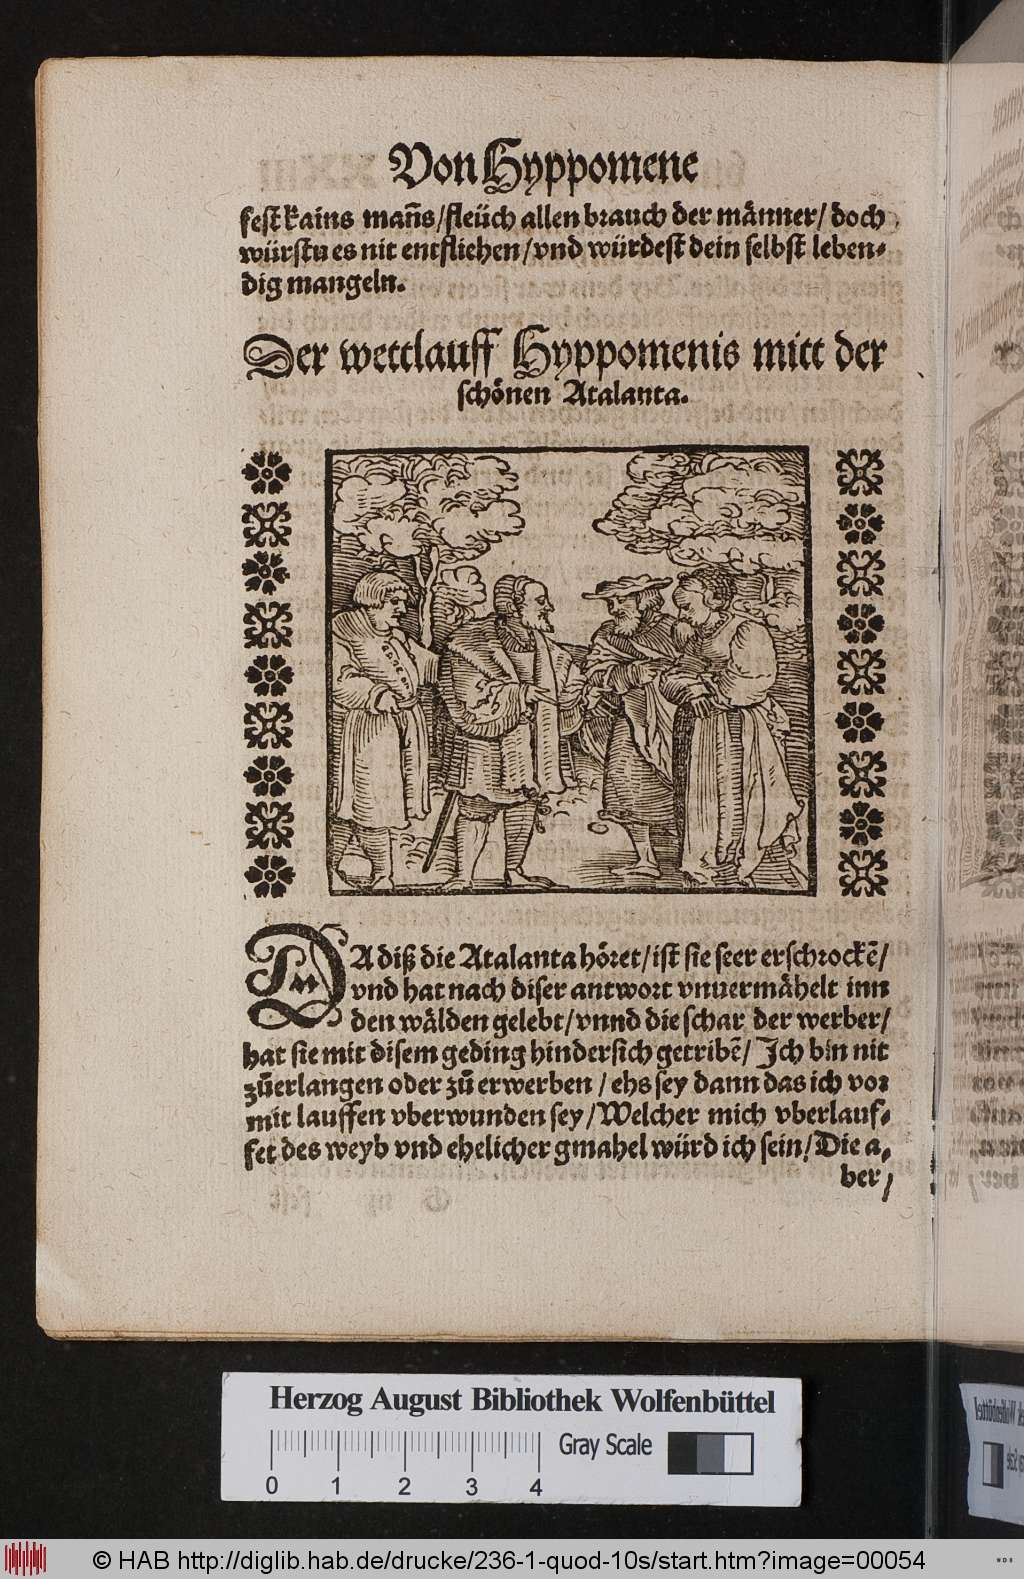 Von Hyppomene
fest kains mañs/fleüch allen brauch der männer/doch
würstu es nit entfliehen/vnd würdest dein selbst leben-
dig mangeln.
Der wettlauff Hyppomenis mitt der
schönen Atalanta.
DA diß die Atalanta höret/ist sie seer erschrockē/
vnd hat nach diser antwort vnuermähelt inn
den wälden gelebt/vnnd die schar der werber/
hat sie mit disem geding hindersich getribē/Ich bin nit
zůerlangen oder zů erwerben/ehs sey dann das ich vor
mit lauffen vberwunden sey/Welcher mich vberlauf-
fet des weyb vnd ehelicher gmahel würd ich sein/Die a-
ber/
Herzog August Bibliothek Wolfenbüttel
Gray Scale
0 1 2 3 4
© HAB http://diglib.hab.de/drucke/236-1-quod-10s/start.htm?image=00054